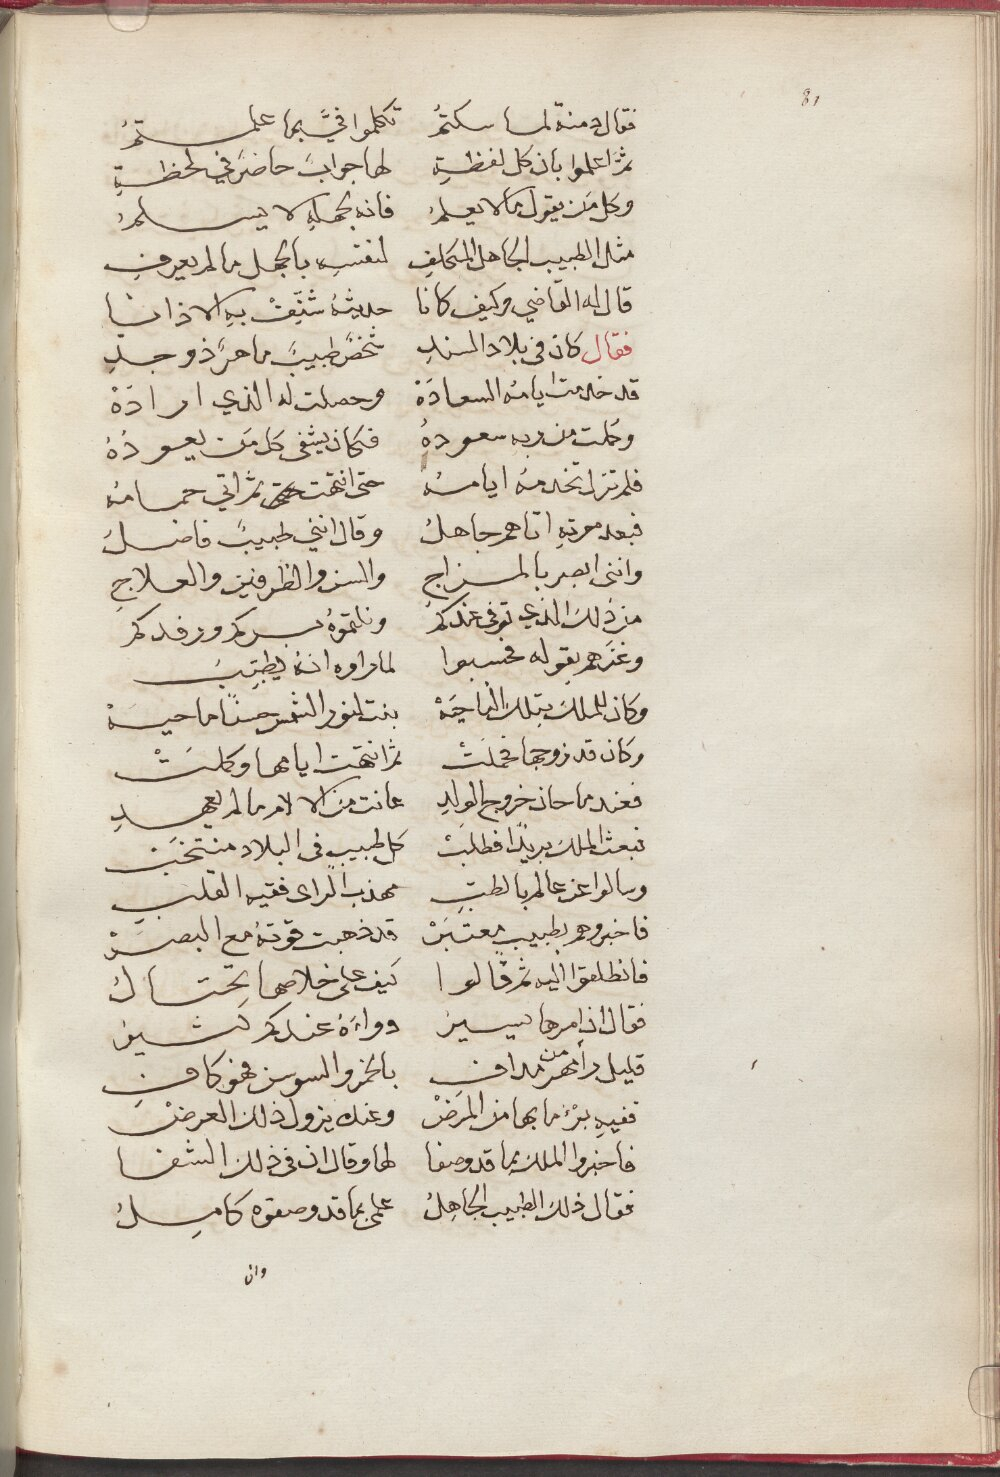 81
فقال دمنة لما سكتمُ تكلموا فيَّ بما علمتمُ
ثم اعلموا بان كل لفظةِ لها جوابَ حاضرَ في لحظةِ
وكل مَن يقول ما لا يعلمُ فانه بجهلهِ لا يسلمُ
مثل الطبيب الجاهل المتكلفِ لنفسهِ بالجهل ما لم يعرفِ
قال له القاضي وكيف كانا حديثهُ شنِّفْ بهِ الاذانا
فقال كان في بلاد السندِ شخصٌ طبيبٌ ماهرٌ ذو جدِ
قد خدمت ايامهُ السعادَهْ وحصلت له الذي ارادَهْ
وكملت من ربه سعودهُ فكان يشفى كل مَن يعودُهُ
فلم تزل تخدمهُ ايامهُ حتى انتهت ثم اتى حمامهُ
فبعد موتهِ اتاهم جاهلُ وقال انني طبيبٌ فاضلُ
وانني ابصر بالمزاجِ والسن والظرفين والعلاجِ
من ذلك الذي توفى عندكمُ ونلتموهُ بركم ورفدكم
وغرهم بقوله فحسبوا لما راوه انهُ يطبِّبُ
وكان للملك بتلك الناحيَهْ بنت لنور الشمس حسنًا ماحيهْ
وكان قد زوجها فحملَتْ ثم انتهت ايامها وكملَتْ
فعند ما حان خروج الولدِ عانت من الالام ما لم يعهدِ
فبعث الملك بريدًا فطلبَتْ كل طبيبٍ في البلاد منتخبَتْ
وسالوا عن عالم بالطبِّ مهذب الراى فقيه القلبِ
فاخبروهم بطبيبٍ معتبَرْ قد ذهبت قوتهُ مع البصَرْ
فانطلقوا اليه ثم قالوا كيف على خلاصها يحتالُ
فقال ان امرها يسيرُ دواءهُ عندكم كثيرُ
قليل رامهر من مدافِ بالخمر والسوسن فهو كافِ
ففيهِ برءُ ما بها من المرَضْ وعنه يزول ذلك العرضْ
فاخبروا الملك بما قد وصفا لها وقال ان في ذلك الشفا
فقال ذلك الطبيب الجاهلُ علمي بما قد وصفوه كاملُ
وان